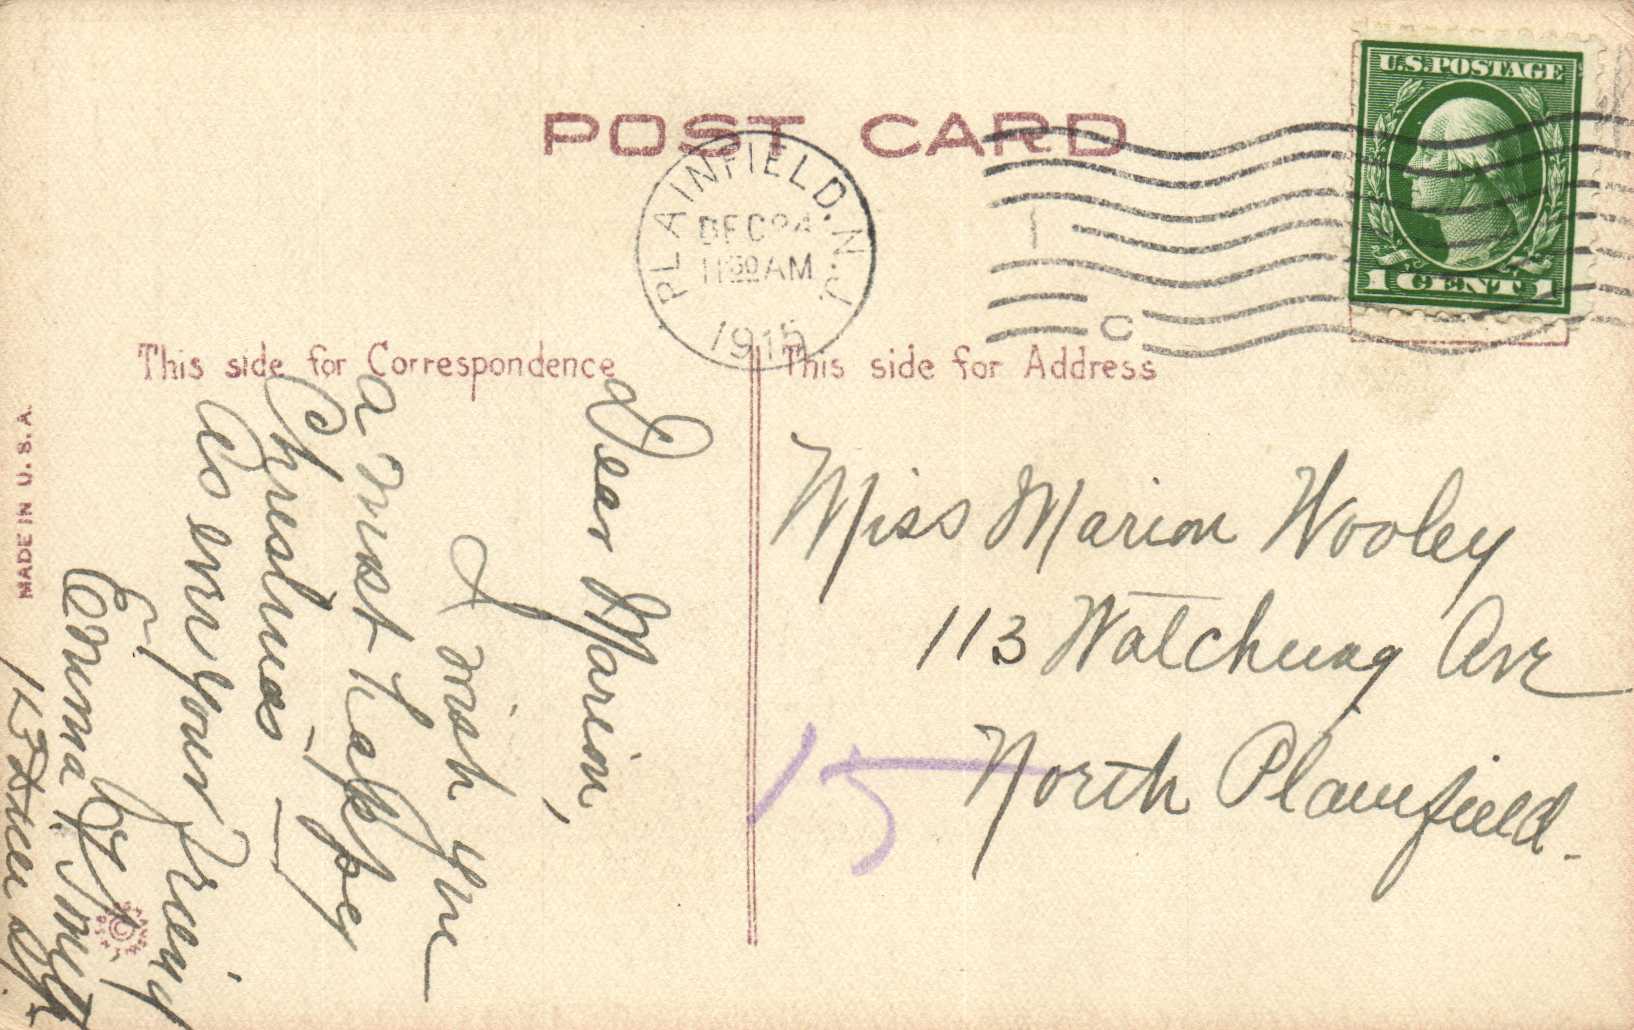 POST CARD
U.S. POSTAGE
1 CENT 1
PLAINFIELD. N.J.
DEC 24
11 30 AM
1915
This side for Correspondence
This side for Address
MADE IN U.S.A.
Dear Marion,
I wish you
a most happy
Christmas
As ever your
Emma Smith
Miss Marion Wooley
113 Watchung Ave
North Plainfield.
15